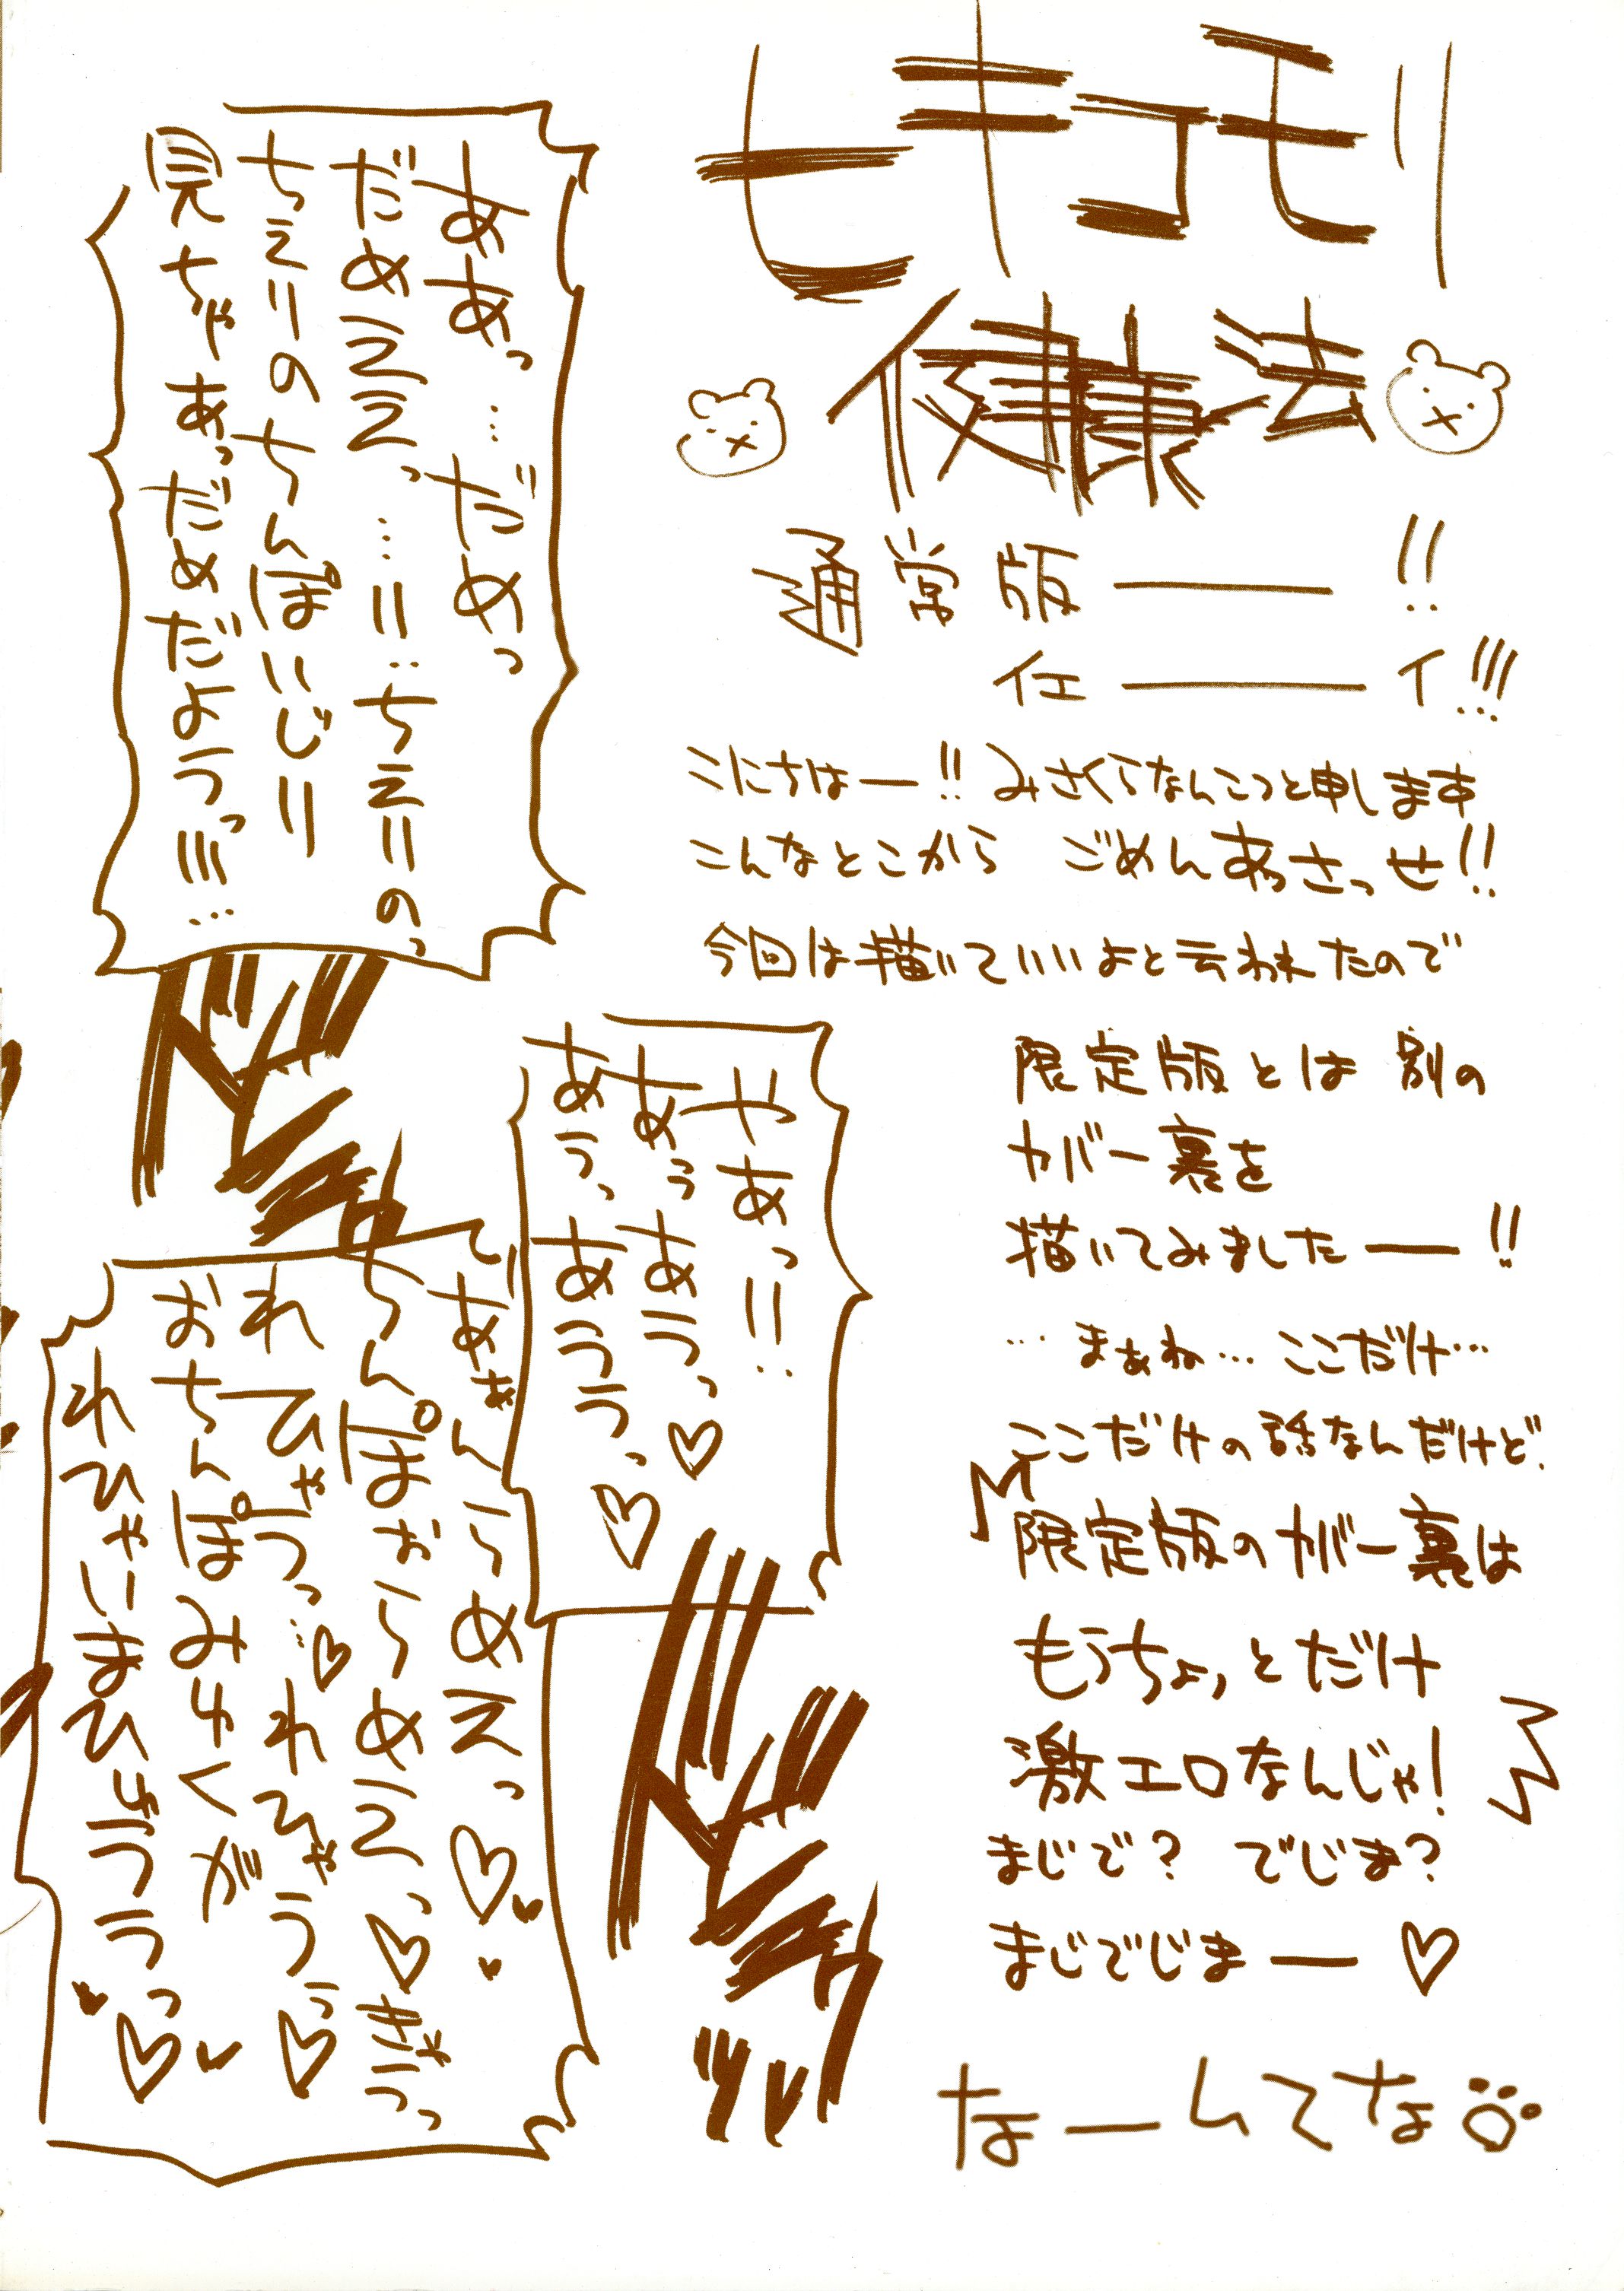 ヒキコモリ
健康法
通常版――!!
イエ――イ!!!
こにちはー!! みさくらなんこつと申します
こんなとこから ごめんあさっせ!!
今回は描いていいよと云われたので
限定版とは別の
カバー裏を
描いてみました――!!
…まぁね…ここだけ…
ここだけの話なんだけど、
限定版のカバー裏は
もうちょっとだけ
激エロなんじゃ!
まじで? でじま?
まじでじまー♡
なーんてな
ああっ…だめっ
だめええっ…!!…ちえりのっ
ちえりのちんぽいじり
見ちゃあっだめだようっ!!!…
やあっ!!
ああっああうっ♡
あうっあうううっ♡
らめえっ♡
ちんぽおらめえっ♡
れひゃうっ…♡れひゃうっ♡
おちんぽみゆくが
ドピュ
ドピュ
ツッ